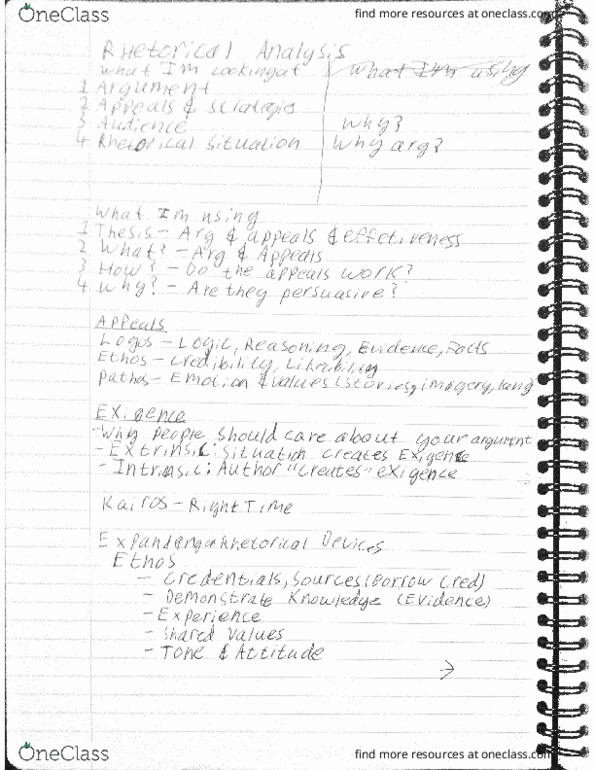 OneClass
find more resources at oneclass.com
Rhetorical Analysis
What I'm Looking at
What I'm using
1 Argument
2 Appeals & strategies
3 Audience
Why?
4 Rhetorical Situation
Why arg?
What I'm using
1 Thesis - Arg & appeals & effectiveness
2 What? - Arg & Appeals
3 How? - Do the appeals work?
4 Why? - Are they persuasive?
Appeals
Logos - Logic, Reasoning, Evidence, Facts
Ethos - Credibility, Likeability
Pathos - Emotion & values (stories, imagery, lang
Exigence
- Why people should care about your argument
- Extrinsic: Situation creates Exigence
- Intrinsic: Author "creates" exigence
Kairos - Right Time
Expanding on Rhetorical Devices
Ethos
- Credentials, Sources (Borrow Cred)
- Demonstrate Knowledge (Evidence)
- Experience
- Shared Values
- Tone & Attitude
→
OneClass
find more resources at oneclass.com